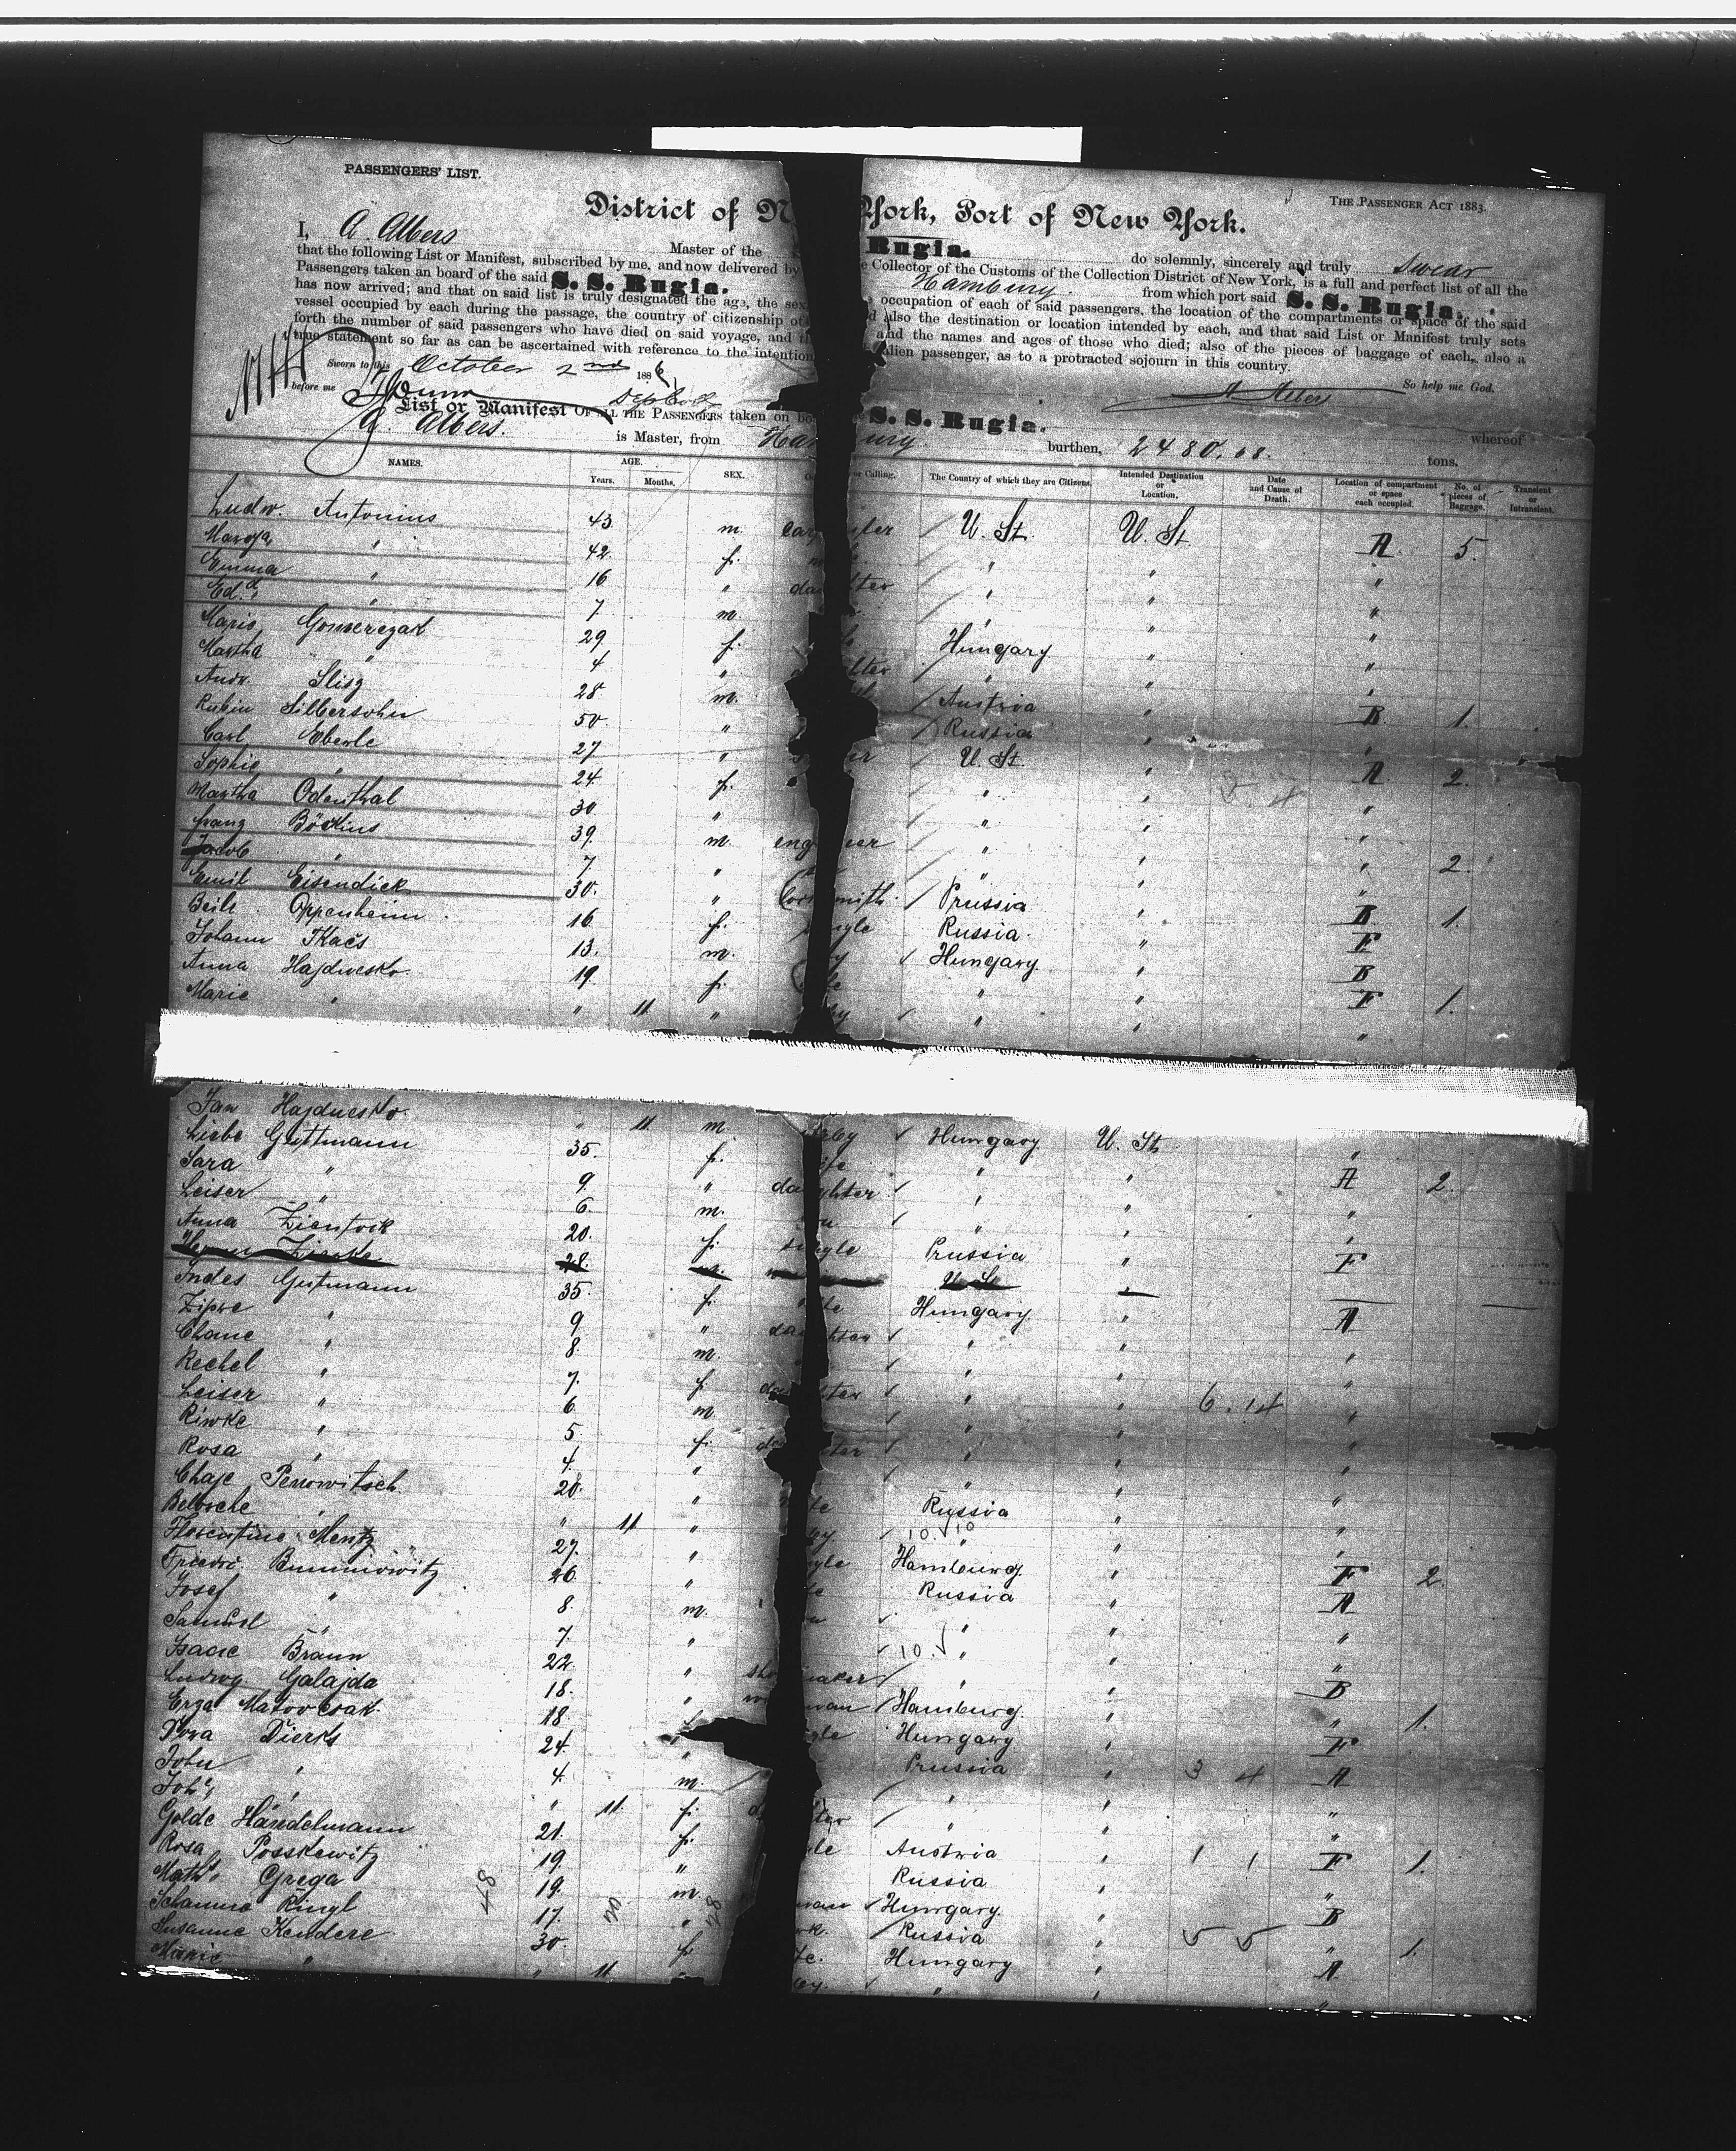 PASSENGERS' LIST.
THE PASSENGER ACT 1883.
District of N York, Port of New York.
I, A. Albers Master of the Rugia. do solemnly, sincerely and truly swear
that the following List or Manifest, subscribed by me, and now delivered by e Collector of the Customs of the Collection District of New York, is a full and perfect list of all the
Passengers taken an board of the said S. S. Rugia. Hamburg. from which port said S. S. Rugia.
has now arrived; and that on said list is truly designated the age, the sex occupation of each of said passengers, the location of the compartments or space of the said
vessel occupied by each during the passage, the country of citizenship of d also the destination or location intended by each, and that said List or Manifest truly sets
forth the number of said passengers who have died on said voyage, and th and the names and ages of those who died; also of the pieces of baggage of each, also a
true statement so far as can be ascertained with reference to the intention alien passenger, as to a protracted sojourn in this country.
Sworn to this October 2nd 1886
before me So help me God.
A Albers
List or Manifest OF ALL THE PASSENGERS taken on bo S. S. Rugia. whereof
A. Albers. is Master, from Ha urg. burthen, 2480.68. tons.
NAMES. AGE. Years. Months. SEX. Calling. The Country of which they are Citizens. Intended Destination or Location. Date and Cause of Death. Location of compartment or space each occupied. No. of pieces of Baggage. Transient or Intransient.
Ludw. Antonius 43 m. car ter U. St. U. St. A. 5.
" 42 f. " " "
Emma " 16 " da ter " " "
Ed. " 7 m " " "
Marie 29 f. Hungary " "
Martha " 4 " ter " " "
Andr. Slisz 28 m. Austria " B 1.
Rubin Silbersohn 50 " Russia " "
Carl Eberle 27 " U. St. " A 2.
Sophie " 24 f. " " "
Martha Odenthal 30 " " " "
Franz Böckius 39 m. eng eer " " " 2.
Jacob " 7. " " " "
Emil Eisendick 30. " smith Prussia " B 1.
Beile Oppenheim 16 f. gle Russia. " F
Johann Tkacs 13. m. Hungary. " B
Anna Hajduesko. 19. f. " " F 1.
Marie " " 11 " by " " "
Jan Hajduesko. " 11 m. aby Hungary. U. St. "
Liebe Guttmann 35. f. fe " " A 2.
Sara " 9. " da ghter " " "
Leiser " 6. m. " " "
Anna Zientock 20. f. gle Prussia " F
28. m. U. St.
Indes Gutmann 35. f. fe Hungary " A
Zipre " 9 " da hter " " "
Chane " 8. m. " " "
Rechel " 7. f. da ter " " "
Leiser " 6. m. " " 6. 14 "
Riwke " 5. f. da ter " " "
Rosa " 4. " " " "
Chaje Penowitsch. 20. " fe Russia " "
Belosche " " 11 " by 10. 10 " "
Florentine Mentz 27. " gle Hamburg. " F 2.
Friedr. 26. " Russia " A
Josef " 8. m. " " "
Samuel " 7. " 10. " " "
Isaac Braun 22. " sho maker " " B
Ludwig Galajda 18. " wo man Hamburg. " " 1.
Erza Matovcsak. 18 gle Hungary " F
Dora Dierks 24. " Prussia " 3 4 A
John " 4. m. " " "
Joh. " " 11. f. d ter " " "
Golde Händelmann 21. f. le Austria " 1 1 F 1.
Rosa Posskewitz 19. " Russia " "
Math. Grega 19. m. man Hungary. " B
Schamne Ringl 17. " k. Russia " 5 5 " 1.
Susanne Kendere 30. f. fe. Hungary " A
Marie " " 11 " by. " " "